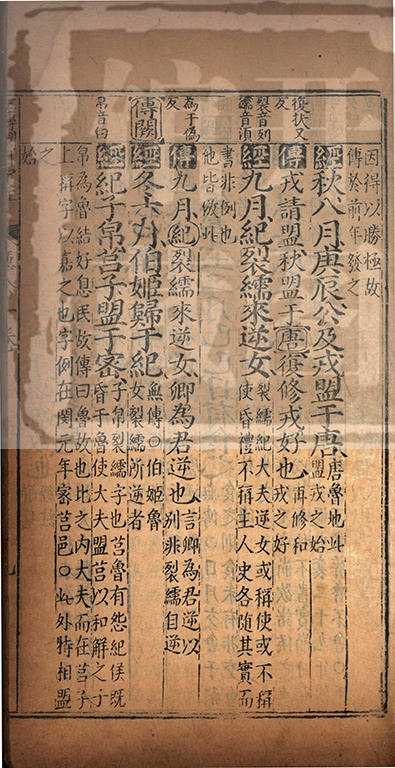 因得以勝極故
傳於前年發之
經秋八月庚辰公及戎盟于唐
唐魯地此
盟戎之始
復扶又
反
傳戎請盟秋盟于唐復修戎好也
再修和
戎之好
裂音列
繻音須
經九月紀裂繻來逆女
裂繻紀大夫逆女或稱使或不稱
使昏禮不稱主人史各隨其實而
書非例也
他皆倣此
為于偽
反
傳九月紀裂繻來逆女卿為君逆也
言卿為君逆以
別非裂繻自逆
傳闕
經冬十月伯姬歸于紀
無傳○伯姬魯
女裂繻所逆者
帛音白
經紀子帛莒子盟于密
子帛裂繻字也莒魯有怨紀侯既
昏于魯使大夫盟莒以和解之子
帛為魯結好息民故傳曰魯故也比之内大夫而在莒子
上稱字以嘉之也字例在閔元年密莒邑○此外特相盟
之
始